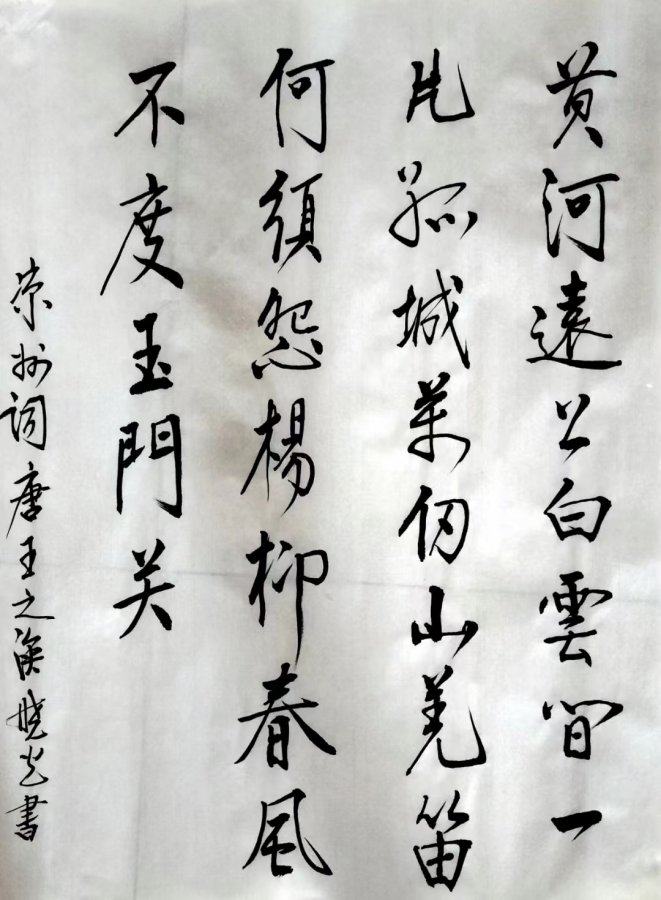 黄河遠上白雲間一
片孤城萬仞山羌笛
何須怨楊柳春風
不度玉門关
凉州词唐王之涣晓光書